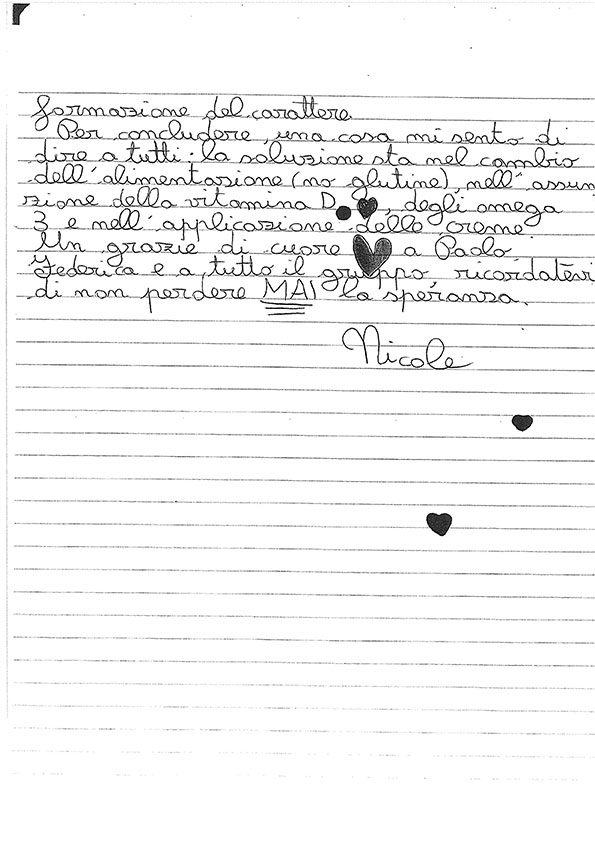 formazione del carattere.
Per concludere, una cosa mi sento di
dire a tutti: la soluzione sta nel cambio
dell'alimentazione (no glutine), nell'assun
zione della vitamina D, degli omega
3 e nell'applicazione delle creme
Un grazie di cuore a Paolo
Federica e a tutto il gruppo, ricordatevi
di non perdere MAI la speranza.
Nicole